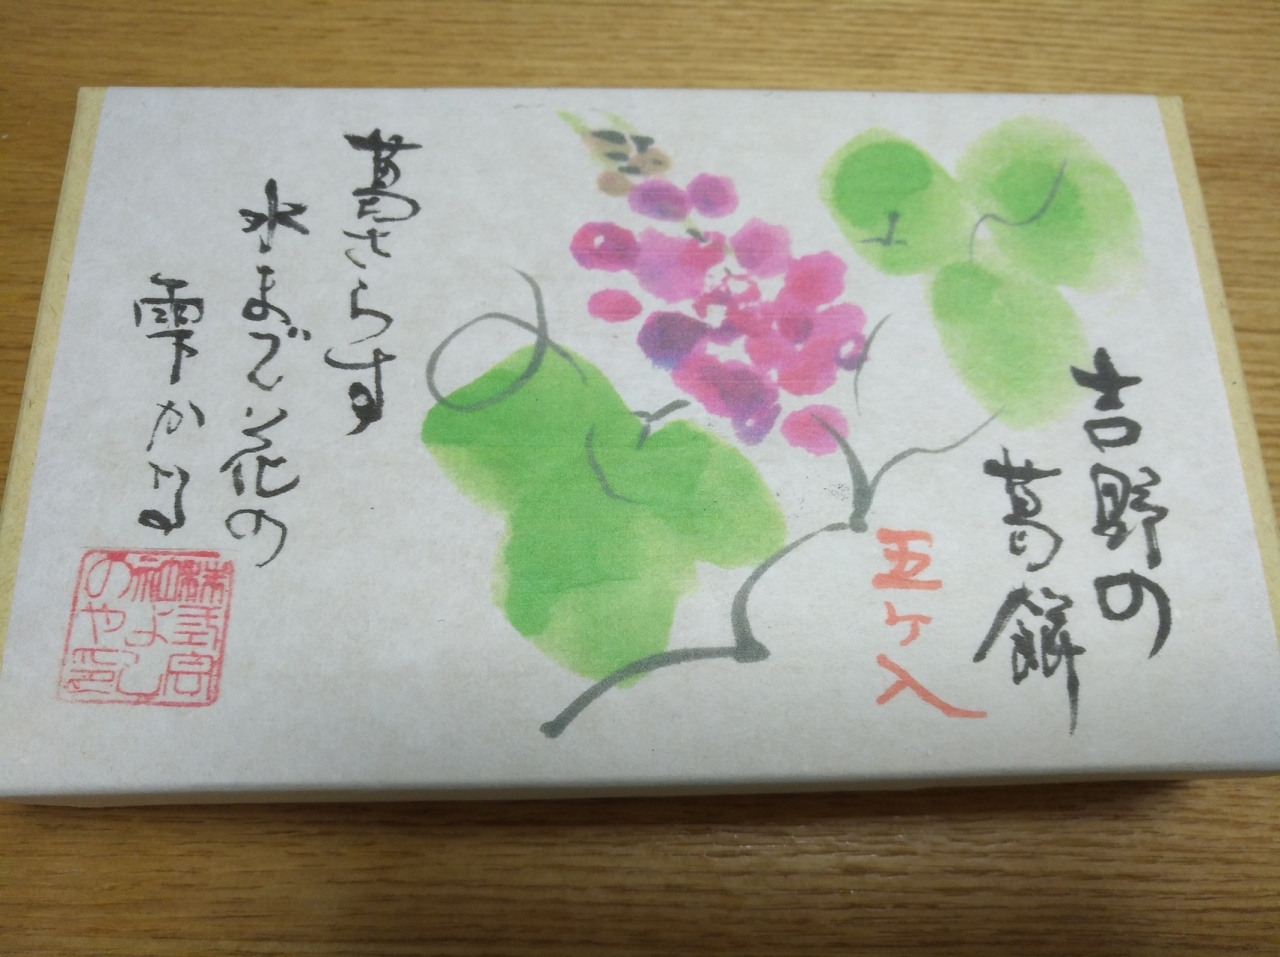 吉野の
葛餅
五ヶ入
葛さらす
水まで花の
雫かな